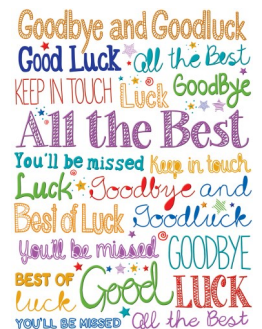 Goodbye and Goodluck
Good Luck All the Best
KEEP IN TOUCH Luck GoodBye
All the Best
You'll be missed Keep in touch
Luck Goodbye and
Best of Luck Goodluck
You'll be missed GOODBYE
BEST OF luck Good LUCK
YOU'LL BE MISSED All the Best